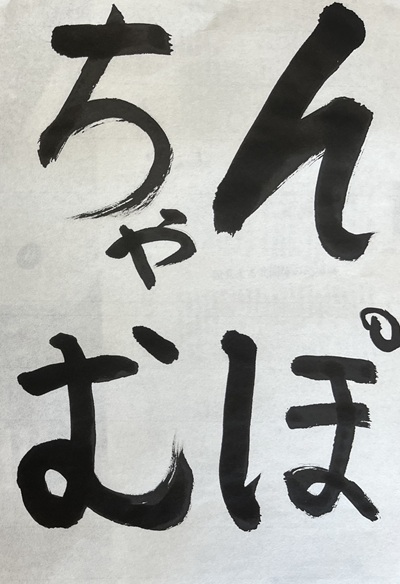 んぽ
ちゃむ